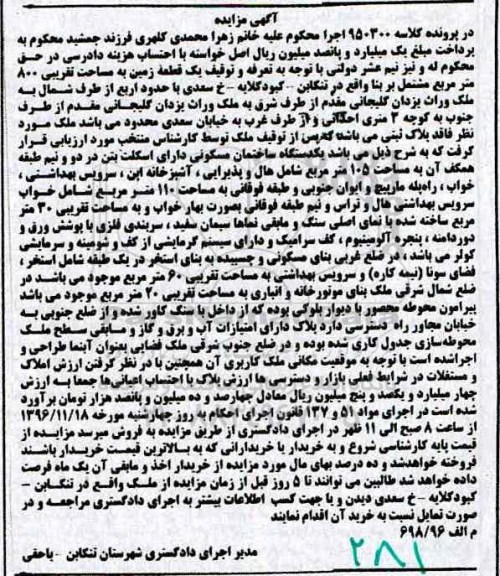 آگهی مزایده
در پرونده کلاسه ۹۵۰۳۰۰ اجرا محکوم علیه خانم زهرا محمدی کلهری فرزند جمشید محکوم به
پرداخت مبلغ یک میلیارد و پانصد میلیون ریال اصل خواسته با احتساب هزینه دادرسی در حق
محکوم له و نیز نیم عشر دولتی با توجه به تعرفه و توقیف یک قطعه زمین به مساحت تقریبی ۸۰۰
متر مربع مشتمل بر بنا واقع در تنکابن – کبودکلایه – خ سعدی با حدود اربع از طرف شمال به
ملک وراث یزدان گلیجانی مقدم از طرف شرق به ملک وراث یزدان گلیجانی مقدم از طرف
جنوب به کوچه ۳ متری احداثی و از طرف غرب به خیابان سعدی محدود می باشد ملک مورد
نظر فاقد پلاک ثبتی می باشد که پس از توقیف ملک توسط کارشناس منتخب مورد ارزیابی قرار
گرفت که به شرح ذیل می باشد یکدستگاه ساختمان مسکونی دارای اسکلت بتن در دو و نیم طبقه
همکف آن به مساحت ۱۰۵ متر مربع شامل هال و پذیرایی ، آشپزخانه اپن ، سرویس بهداشتی ،
خواب ، راه‌پله مارپیچ و ایوان جنوبی و طبقه فوقانی به مساحت ۱۱۰ متر مربع شامل خواب
سرویس بهداشتی هال و تراس و نیم طبقه فوقانی بصورت بهار خواب و به مساحت تقریبی ۳۰ متر
مربع ساخته شده با نمای اصلی سنگ و مابقی نماها سیمان سفید ، سربندی فلزی با پوشش ورق و
دوردامنه ، پنجره آلومینیوم ، کف سرامیک و دارای سیستم گرمایشی از کف و شومینه و سرمایشی
کولر می باشد ، در ضلع غربی بنای مسکونی و چسبیده به بنای استخر در یک طبقه شامل استخر ،
فضای سونا (نیمه کاره) و سرویس بهداشتی به مساحت تقریبی ۶۰ متر مربع موجود می باشد در
ضلع شمال شرقی ملک بنای موتورخانه و انباری به مساحت تقریبی ۲۰ متر مربع موجود می باشد
پیرامون محوطه محصور با دیوار بلوکی بوده که از داخل با سنگ کاور شده و از ضلع جنوبی به
خیابان مجاور راه دسترسی دارد پلاک دارای امتیازات آب و برق و گاز و مسابقی سطح ملک
محوطه‌سازی جدول کاری شده بوده و در ضلع جنوب شرقی ملک فضایی بعنوان آبنما طراحی و
اجرا شده است با توجه به موقعیت مکانی ملک کاربری آن همچنین با در نظر گرفتن ارزش املاک
و مستقلات در شرایط فعلی بازار و دسترسی ها ارزش پلاک با احتساب اعیانی‌ها جمعا به ارزش
چهار میلیارد و یکصد و پنج میلیون ریال معادل چهارصد و ده میلیون و پانصد هزار تومان برآورد
شده است در اجرای مواد ۵۱ و ۱۳۷ قانون اجرای احکام به روز چهارشنبه مورخه ۱۳۹۶/۱۱/۱۸
از ساعت ۸ صبح الی ۱۱ ظهر در اجرای دادگستری از طریق مزایده به فروش میرسد مزایده از
قیمت پایه کارشناسی شروع و به خریدار یا خریدارانی که به بالاترین قیمت خریدار باشند
فروخته خواهدشد و ده درصد بهای مال مورد مزایده از خریدار اخذ و مابقی آن یک ماه فرصت
داده خواهد شد طالبین می توانند تا ۵ روز قبل از زمان مزایده از ملک واقع در تنکابن –
کبودکلایه – خ سعدی دیدن و یا جهت کسب اطلاعات بیشتر به اجرای دادگستری مراجعه و در
صورت تمایل نسبت به خرید آن اقدام نمایند
م الف ۶۹۸/۹۶
مدیر اجرای دادگستری شهرستان تنکابن – یاحقی
۲۸۱